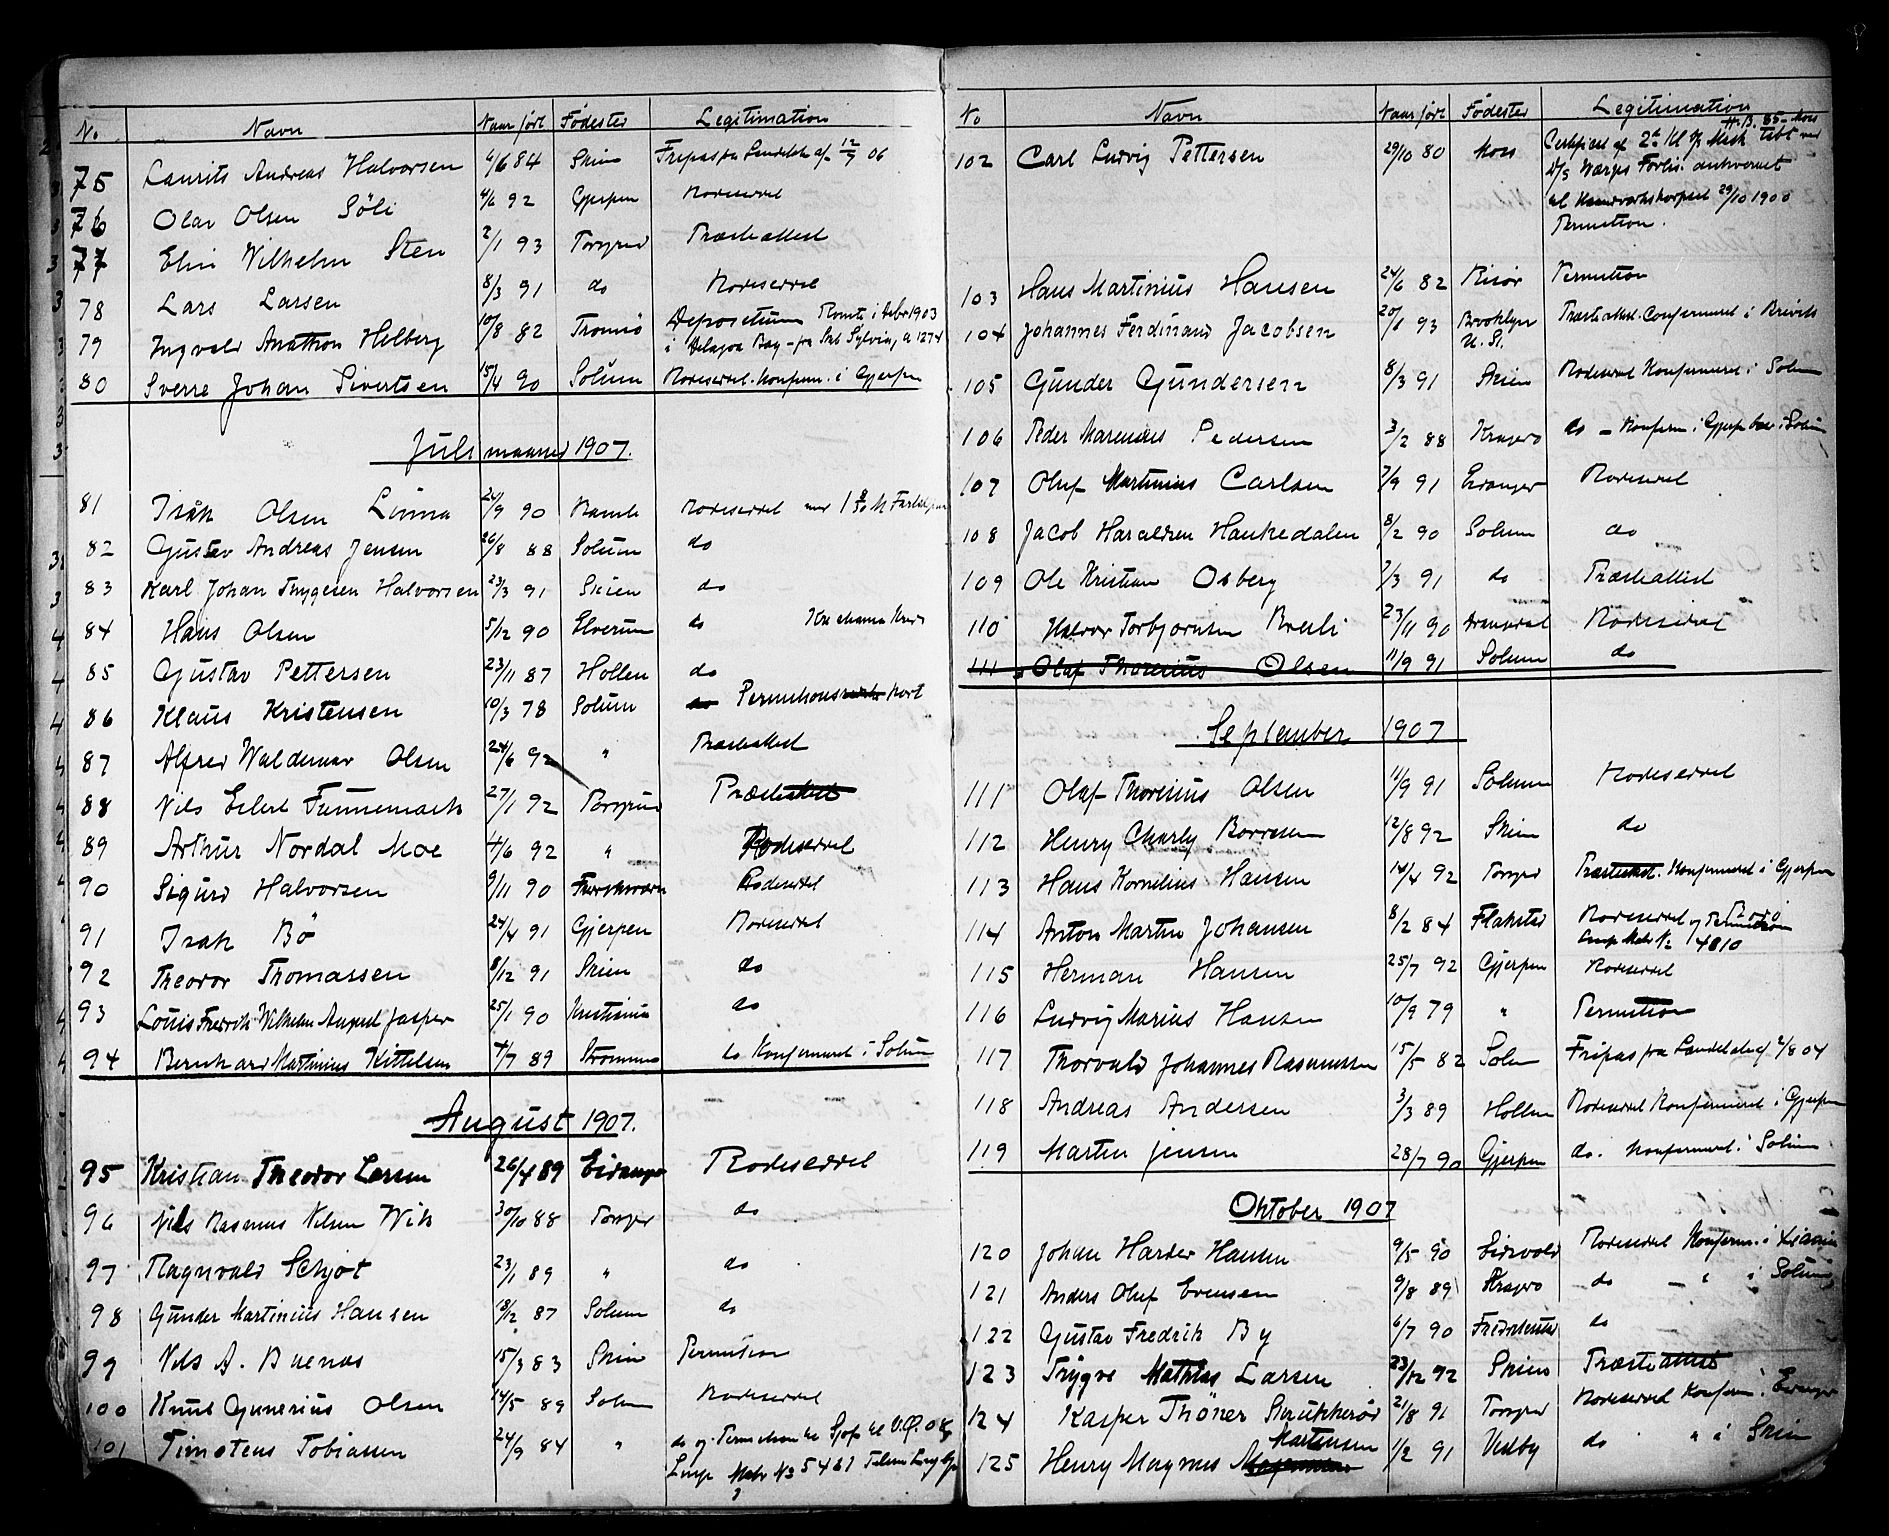 No Navn Naar født Fødested Legitimation
75 Laurits Andreas Halvorsen 4/6 84 Skien Fripas fra Landeth af 12/7 06
76 Olav Olsen Söli 4/6 92 Gjerpen Rodeseddel
77 Elin Wilhelm Sten 2/1 93 Porsgrund Præsteattest
78 Lars Larsen 8/3 91 do Rodeseddel
79 Ingvald Anathon Helberg 10/8 82 Tromsö Depositum Romte i Febr 1903
i Delagoa Bay - fra Skb Sylvia, a 1274
80 Sverre Johan Sivertsen 15/4 90 Solum Rodeseddel. Konferm. i Gjerpen
Juli maaned 1907.
81 Isak Olsen Linna 24/9 90 Bamle Rodeseddel
82 Gustav Andreas Jensen 26/8 88 Solum do
83 Karl Johan Thygesen Halvorsen 23/3 91 Skien do
84 Hans Olsen 5/12 90 Elverum do
85 Gustav Pettersen 23/11 87 Hollen do
86 Klaus Kristensen 10/3 78 Solum do Permitions kort
87 Alfred Waldemar Olsen 24/6 92 " Præsteattest
88 Nils Eilert Funnemark 27/1 92 Porsgrund Præsteattest
89 Arthur Nordal Moe 4/6 92 " Rodeseddel
90 Sigurd Halvorsen 9/11 90 Rodeseddel
91 Isak Bö 24/4 91 Gjerpen Rodeseddel
92 Theodor Thomassen 8/12 91 Skien do
93 Louis Fredrik Wilhelm August Jasper 25/1 90 Kristiania do
94 Bernhard Martinius Kittelsen 4/7 89 Strömmen do Konfermeret i Solum
August 1907.
95 Kristian Theodor Larsen 26/4 89 Eidanger Rodeseddel
96 Nils Rasmus Nilsen Wik 30/10 88 Porsgrd do
97 Ragnvald Schjöt 23/1 89 " do
98 Gunder Martinius Hansen 18/12 87 Solum do
99 Nils A. Buenæs 15/3 83 Skien Permition
100 Knut Gunerius Olsen 14/5 89 Solum Rodeseddel
101 Timoteus Tobiassen 24/9 84 " do og Permition
No 5461
No Navn Naar født Fødested Legitimation
H.B. 85 - Moss
102 Carl Ludvig Pettersen 29/10 80 Moss Certifikat af 2den Kl
D/S Norges Forlis
29/10 1900
Permition.
103 Hans Martinius Hansen 24/6 82 Risör Permition
104 Johannes Ferdinand Jacobsen 20/1 93 Brooklyn Præsteattest. Confermeret i Brevik
U. St.
105 Gunder Gundersen 8/3 91 Skien Rodeseddel Konfermeret i Solum
106 Peder Marensius Pedersen 3/2 88 Kragerö do - Konferm. i Gjerpen
107 Oluf Martinius Carlsen 7/9 91 Eidanger Rodeseddel
108 Jacob Haraldsen Haukedalen 8/2 90 Solum do
109 Ole Kristian Osberg 7/3 91 do Præsteattest
110 Halvor Torbjørnsen Brekli 23/11 90 Drangedal Rodeseddel
111 Olaf Thorenius Olsen 11/9 91 Solum do
September 1907
111 Olaf Thorenius Olsen 11/9 91 Solum Rodeseddel
112 Henry Charly Borresen 12/8 92 Skien do
113 Hans Kornelius Hansen 14/4 92 Porsgrd Præsteattest. Konfermeret i Gjerpen
114 Anton Martin Johansen 8/2 84 Flakstad Rodeseddel og Permition Bodö
No 4810
115 Herman Hansen 25/7 92 Gjerpen Rodeseddel
116 Ludvig Marius Hansen 10/9 79 " Permition
117 Thorvald Johannes Rasmussen 15/5 82 Solum Fripas fra Landet af 2/8 04
118 Andreas Andersen 3/3 89 Hollen Rodeseddel Konfermeret i Gjerpen
119 Martin Jensen 28/7 90 Gjerpen do. Konfermeret i Solum
Oktober 1907
120 Johan Harder Hansen 9/5 90 Eidsvold Rodeseddel Konferm. i
121 Anders Oluf Evensen 9/8 89 Kragerö do - " i Solum
122 Gustav Fredrik By 6/7 90 do
123 Trygve Mathias Larsen 23/12 92 Skien Præsteattest
124 Kasper Thöner Skrukkeröd 21/8 91 Porsgrd Rodeseddel Konferm. i Eidanger
Martinsen
125 Henry Magnus 1/2 91 Vestby do " i Skien